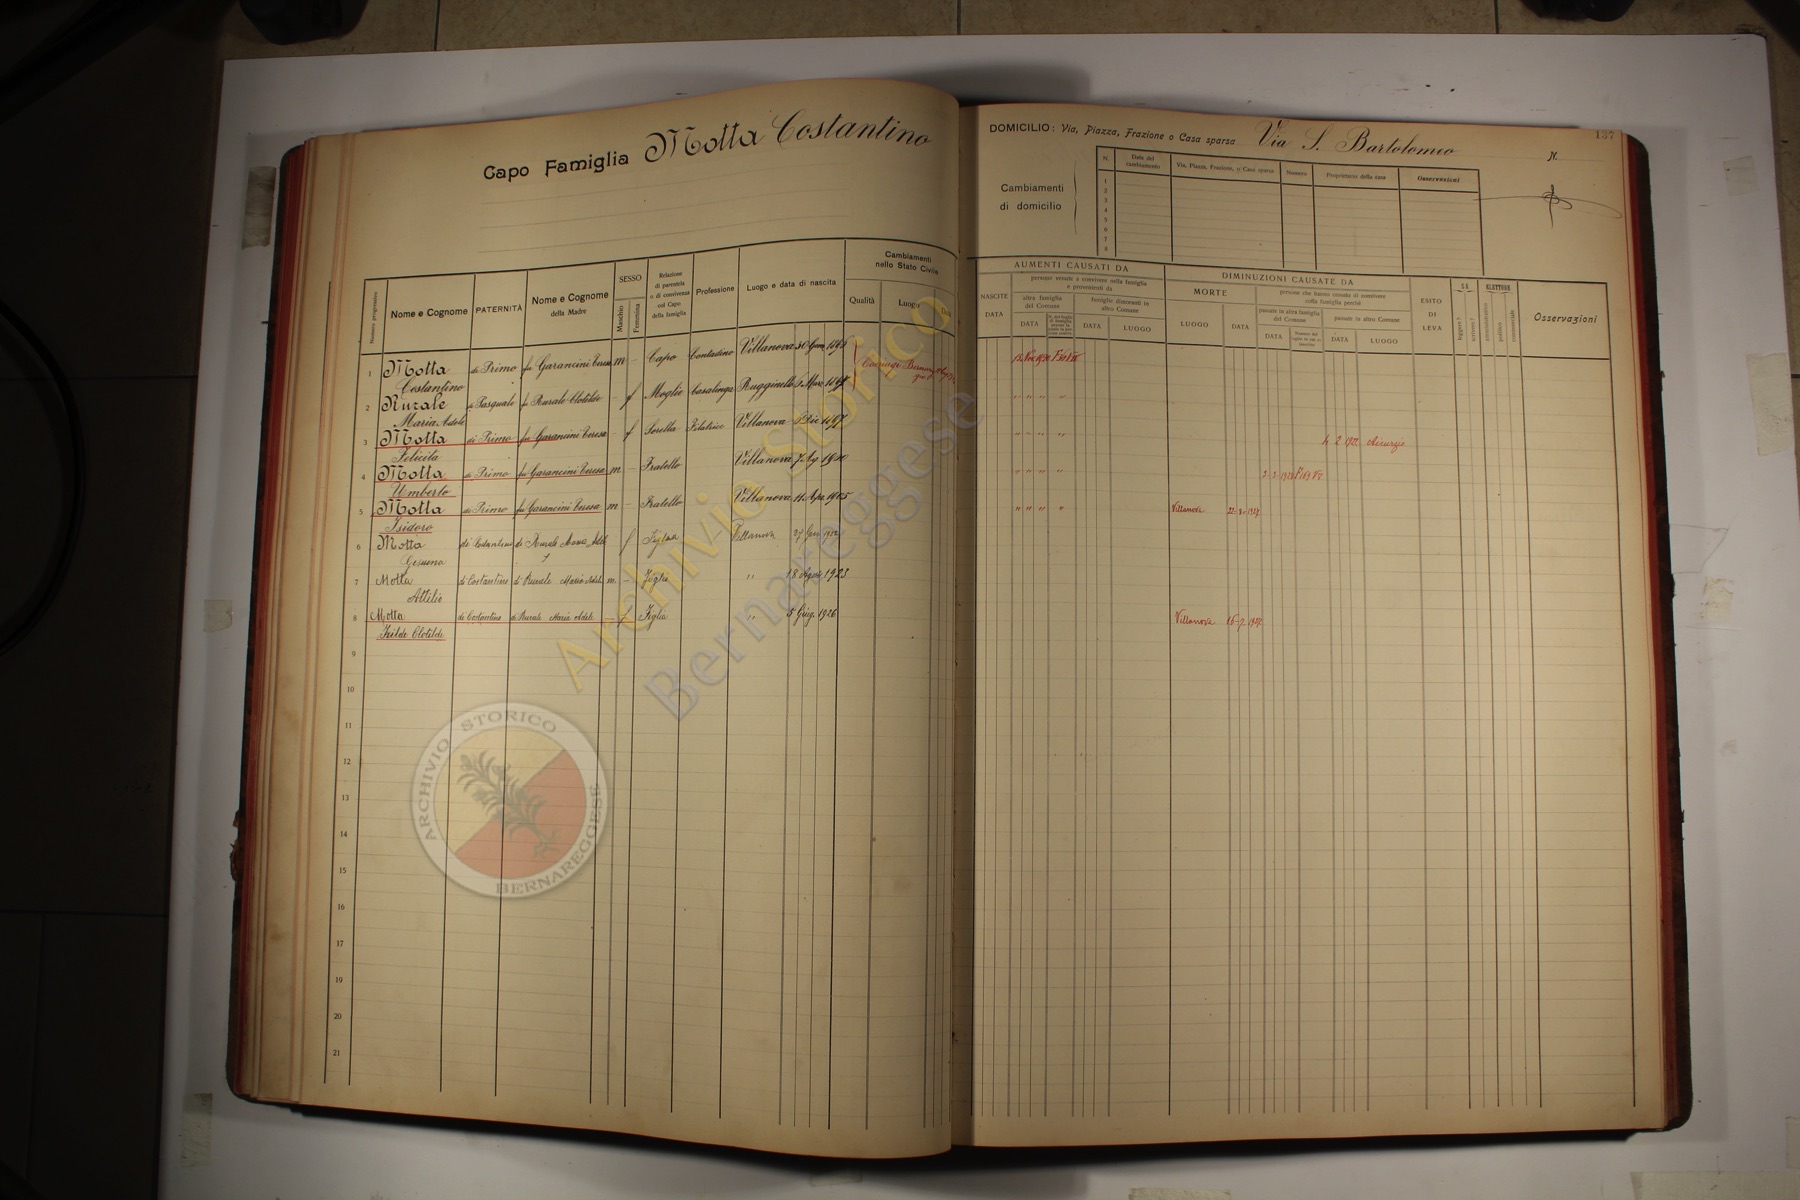 Capo Famiglia Motta Costantino
Numero progressivo
Nome e Cognome
PATERNITÀ
Nome e Cognome
della Madre
SESSO
Maschio
Femmina
Relazione
di parentela
o di convivenza
col Capo
della famiglia
Professione
Luogo e data di nascita
Cambiamenti
nello Stato Civile
Qualità
Luogo
Data
1 Motta di Primo fu Garancini Teresa m - Capo Contadino Villanova 30 Genn
Costantino
Coniugi
2 Rurale di Pasquale fu Rurale Clotilde - f Moglie Casalinga Rugginello
Maria Adele
3 Motta di Primo fu Garancini Teresa - f Sorella Filatrice Villanova Dic 1897
Felicita
4 Motta di Primo fu Garancini Teresa m - Fratello Villanova 1900
Umberto
5 Motta di Primo fu Garancini Teresa m - Fratello Villanova 11 Apr. 1905
Isidoro
6 Motta di Costantino di Rurale Maria Adele f Figlia Villanova 27 Gen 1922
Gesuina
7 Motta di Costantino di Rurale Maria Adele m - Figlio " 18 Agos. 1923
Attilio
8 Motta di Costantino di Rurale Maria Adele - f Figlia " 5 Giug. 1926
Isilde Clotilde
9
10
11
12
13
14
15
16
17
18
19
20
21
137
DOMICILIO: Via, Piazza, Frazione o Casa sparsa Via S. Bartolomeo N.
Cambiamenti
di domicilio
N.
Data del
cambiamento
Via, Piazza, Frazione, o Casa sparsa
Numero
Proprietario della casa
Osservazioni
1
2
3
4
5
6
7
8
AUMENTI CAUSATI DA
NASCITE
DATA
persone venute a convivere nella famiglia
e provenienti da
altra famiglia
del Comune
DATA
famiglie dimoranti in
altro Comune
DATA
LUOGO
DIMINUZIONI CAUSATE DA
MORTE
LUOGO
DATA
persone che hanno cessato di convivere
colla famiglia perchè
passate in altra famiglia
del Comune
DATA
passate in altro Comune
DATA
LUOGO
ESITO
DI
LEVA
SA
leggere?
scrivere?
ELETTORE
amministrativo
politico
commerciale
Osservazioni
" " " "
" " " " 2 1922 Aicurzio
" " " "
" " " " Villanova 22-8-1927
Villanova 16-7 1927
Archivio Storico
Bernareggese
ARCHIVIO STORICO
BERNAREGGESE